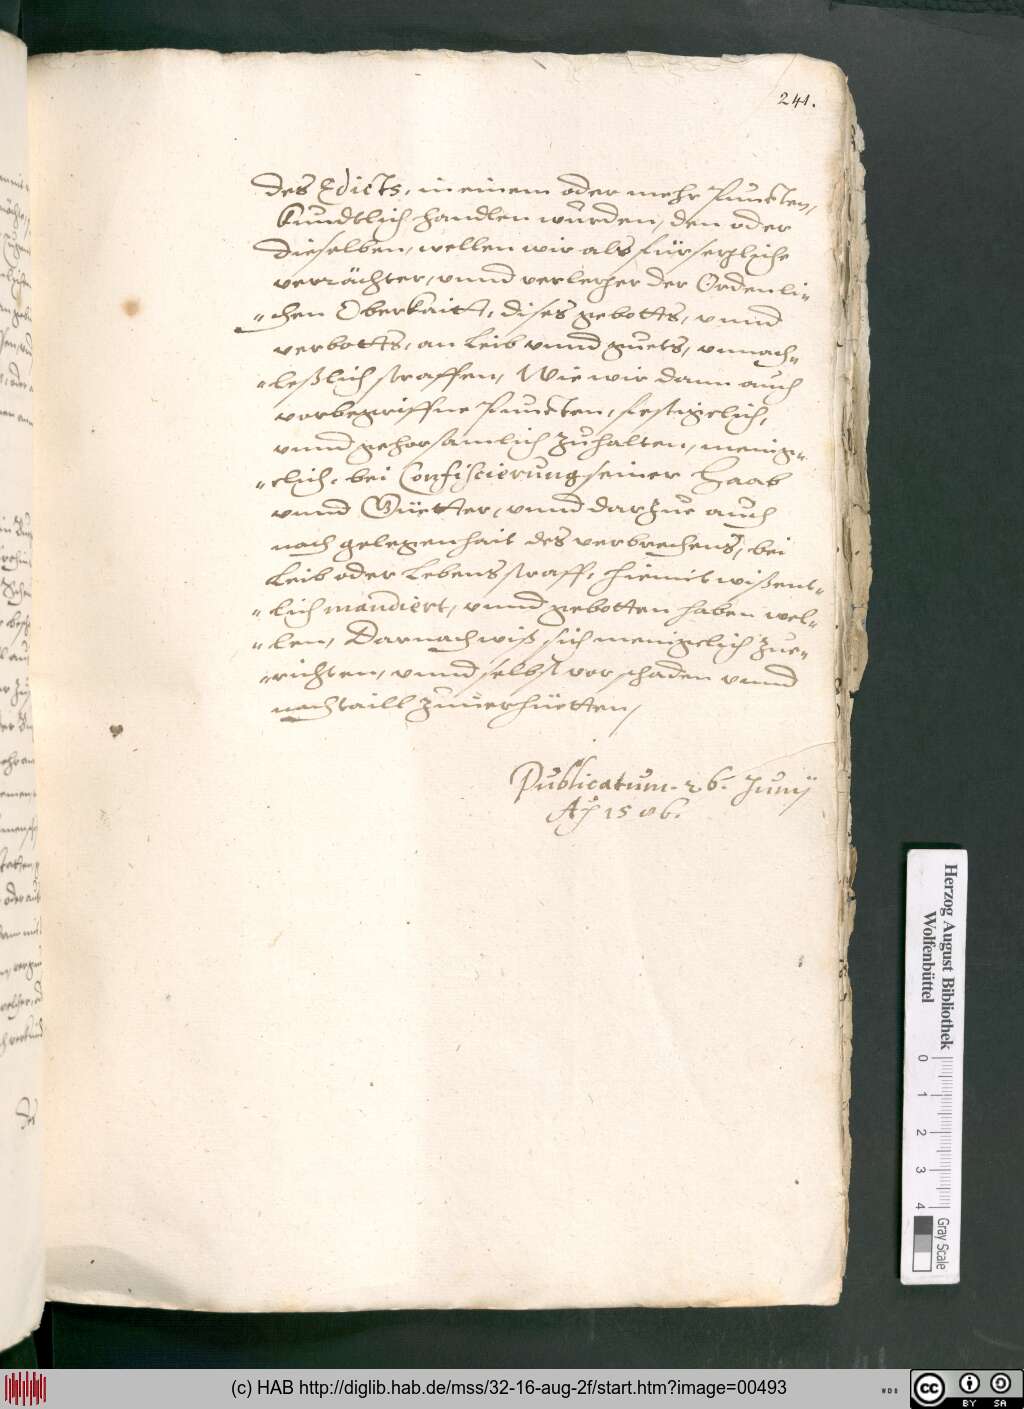 241.
des Edicts, in einem oder mehr Puncten,
kundtlich handlen würden, den oder
dieselben, wellen wir als fürsezliche
verrächter, vnnd verlezer der Ordenli=
=chen Oberkaitt, dises gebotts, vnnd
verbotts, an Leib vnnd guets, vnnach=
=leßlich straffen, Wie wir dann auch
vorbegriffne Puncten, festigelich,
vnnd gehorsamlich zuhalten, menig=
=clich, bei Confiscierung seiner Haab
vnnd Güetter, vnnd darzue auch
nach gelegenhait des verbrechens, bei
Leib oder Lebens straff, hiemit wißent=
=lich mandiert, vnnd gebotten haben wel=
=len, Darnach wiß sich menigelich zue=
=richten, vnnd selbst vor schaden vnnd
nachtaill zuuerhüetten,
Publicatum. 26. Junij
Ao 1586.
Herzog August Bibliothek
Wolfenbüttel
0 1 2 3 4
Gray Scale
(c) HAB http://diglib.hab.de/mss/32-16-aug-2f/start.htm?image=00493
WDB
cc BY SA